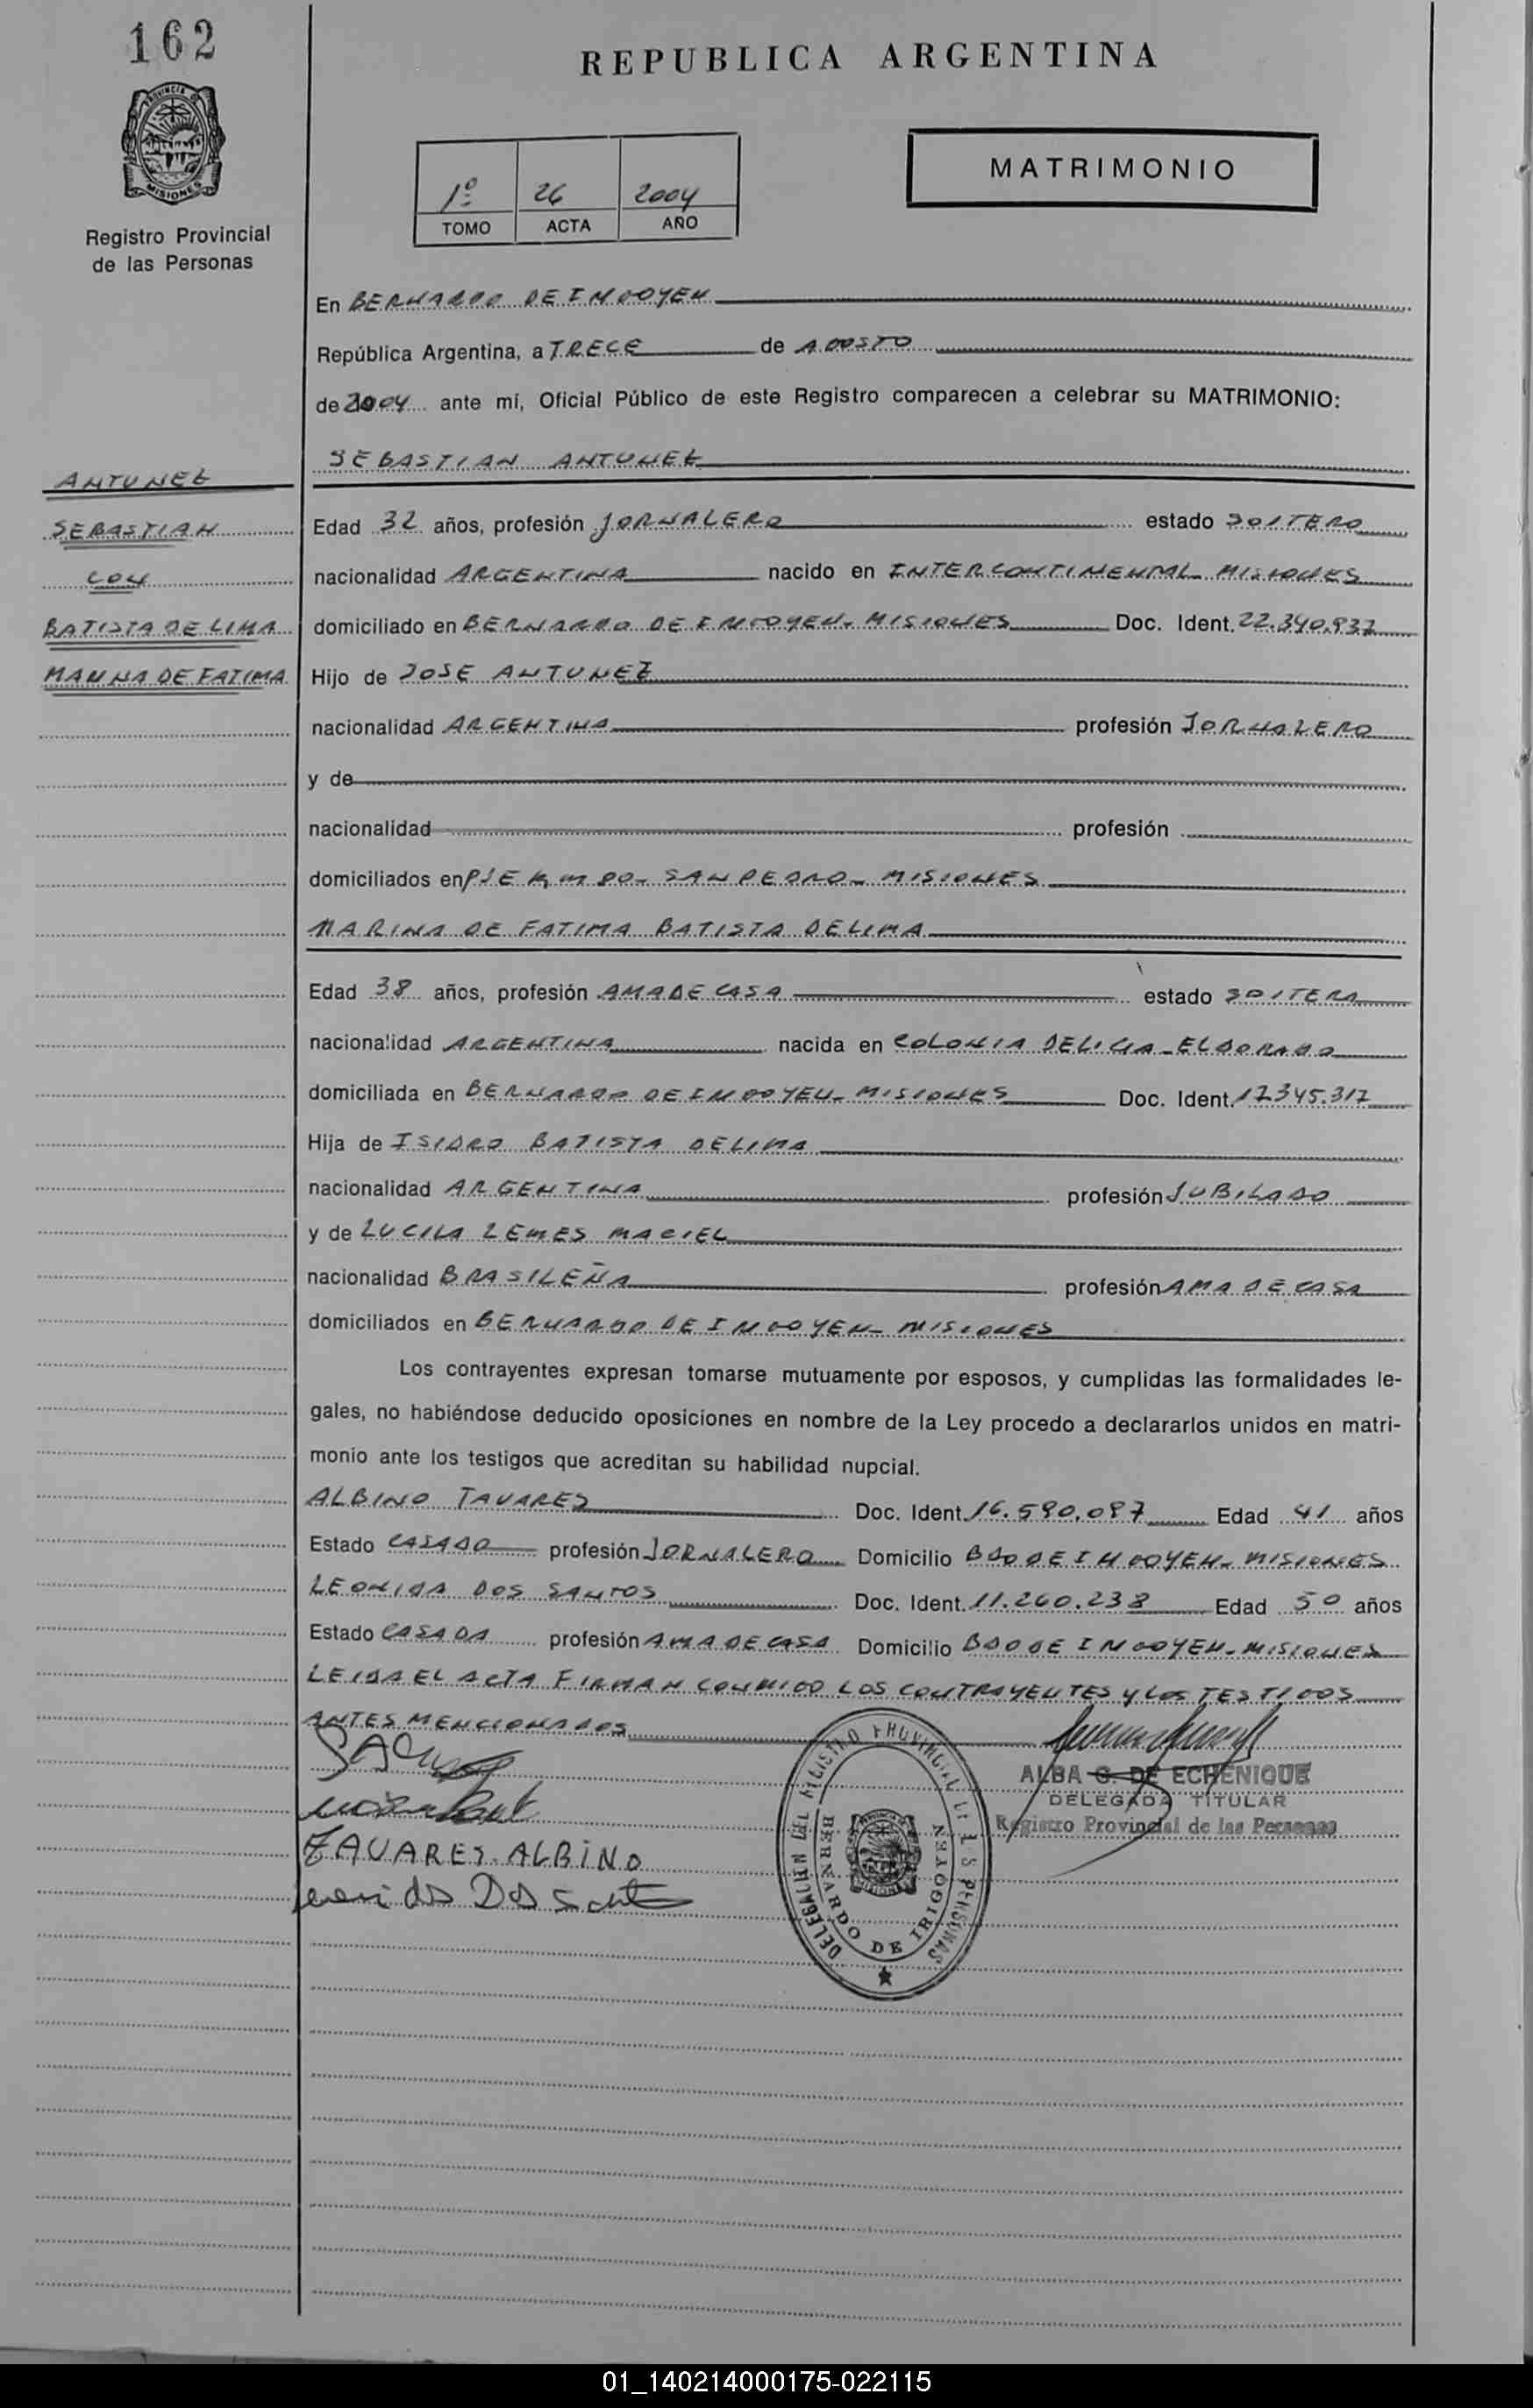 162
REPUBLICA ARGENTINA
PROVINCIA DE MISIONES
MATRIMONIO
1º 26 2004
TOMO ACTA AÑO
Registro Provincial
de las Personas
En BERNARDO DE IRIGOYEN
República Argentina, a TRECE de AGOSTO
de 2004 ante mí, Oficial Público de este Registro comparecen a celebrar su MATRIMONIO:
SEBASTIAN ANTUNEZ
ANTUNEZ
SEBASTIAN
CON
BATISTA DE LIMA
MARINA DE FATIMA
Edad 32 años, profesión JORNALERO estado SOLTERO
nacionalidad ARGENTINA nacido en INTERCONTINENTAL MISIONES
domiciliado en BERNARDO DE IRIGOYEN- MISIONES Doc. Ident. 22.340.937
Hijo de JOSE ANTUNEZ
nacionalidad ARGENTINA profesión JORNALERO
y de
nacionalidad profesión
domiciliados en PJE Km 80- SAN PEDRO- MISIONES
MARINA DE FATIMA BATISTA DE LIMA
Edad 38 años, profesión AMA DE CASA estado SOLTERA
nacionalidad ARGENTINA nacida en COLONIA DELICIA-ELDORADO
domiciliada en BERNARDO DE IRIGOYEN- MISIONES Doc. Ident. 17.345.317
Hija de ISIDRO BATISTA DE LIMA
nacionalidad ARGENTINA profesión JUBILADO
y de LUCILA LEMES MACIEL
nacionalidad BRASILEÑA profesión AMA DE CASA
domiciliados en BERNARDO DE IRIGOYEN- MISIONES
Los contrayentes expresan tomarse mutuamente por esposos, y cumplidas las formalidades le-
gales, no habiéndose deducido oposiciones en nombre de la Ley procedo a declararlos unidos en matri-
monio ante los testigos que acreditan su habilidad nupcial.
ALBINO TAVARES Doc. Ident. 16.590.097 Edad 41 años
Estado CASADO profesión JORNALERO Domicilio BDO DE IRIGOYEN- MISIONES
LEONIDA DOS SANTOS Doc. Ident. 11.260.238 Edad 50 años
Estado CASADA profesión AMA DE CASA Domicilio BDO DE IRIGOYEN- MISIONES
LEIDA EL ACTA FIRMAN CONMIGO LOS CONTRAYENTES Y LOS TESTIGOS
ANTES MENCIONADOS
ALBA G. DE ECHENIQUE
DELEGADA TITULAR
Registro Provincial de las Personas
TAVARES ALBINO
Dos Sant
DELEGACION DEL REGISTRO PROVINCIAL DE LAS PERSONAS
BERNARDO DE IRIGOYEN
01_140214000175-022115